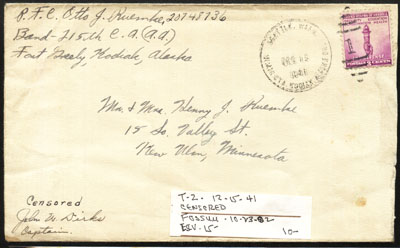 P.F.C. Otto J. Kuemke, 20748736
Band - 215th C.A. (A.A.)
Fort Greely, Kodiak, Alaska
SEATTLE, WASH.
1941
Mr. & Mrs. Henry J. Kuemke
15 So. Valley St.
New Ulm, Minnesota
Censored
John W. Dirks
Captain.
T-2- 12-15-41
CENSORED
10-23-82
ESV-15-
10-